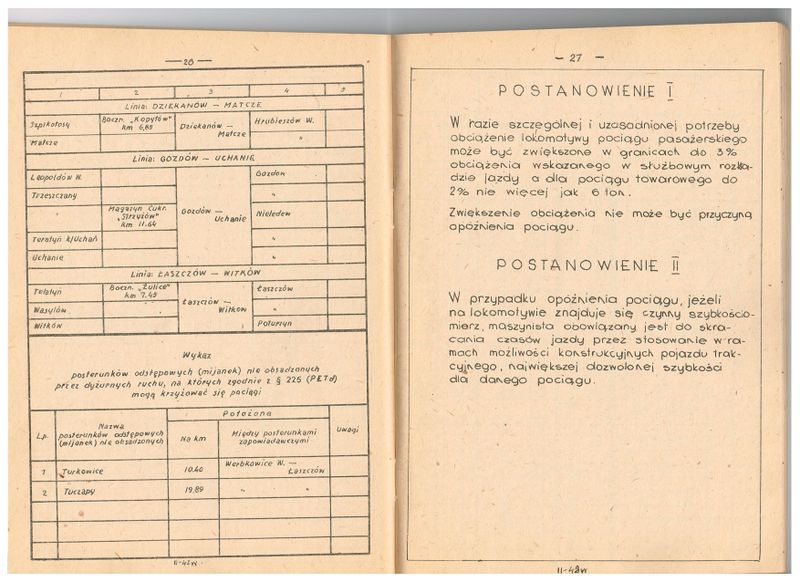 — 26 —
1 2 3 4 5
Linia: DZIEKANÓW – MATCZE
Szpikołosy Boczn. „Kopyłów" km 6,69 Dziekanów – Matcze Hrubieszów W.
Matcze „
Linia: GOZDÓW – UCHANIE
Leopoldów W. Gozdów – Uchanie Gozdów
Trzeszczany „
„ Magazyn Cukr. „Strzyżów" km 11.64 Nieledew
Teratyn k/Uchań „
Uchanie „
Linia: ŁASZCZÓW – WITKÓW
Telatyn Boczn. „Żulice" km 7.49 Łaszczów – Witków Łaszczów
Wasylów „
Witków Poturzyn
Wykaz
posterunków odstępowych (mijanek) nie obsadzonych
przez dyżurnych ruchu, na których zgodnie z § 225 (PETd)
mogą krzyżować się pociągi
Lp. Nazwa posterunków odstępowych (mijanek) nie obsadzonych Położona Uwagi
Na km Między posterunkami zapowiadawczymi
1 Turkowice 10.40 Werbkowice W. – Łaszczów
2 Tuczapy 19.89 „ „
11-42W
– 27 –
POSTANOWIENIE I
W razie szczególnej i uzasadnionej potrzeby
obciążenie lokomotywy pociągu pasażerskiego
może być zwiększone w granicach do 3%
obciążenia wskazanego w służbowym rozkła-
dzie jazdy a dla pociągu towarowego do
2% nie więcej jak 6 ton.
Zwiększenie obciążenia nie może być przyczyną
opóźnienia pociągu.
POSTANOWIENIE II
W przypadku opóźnienia pociągu, jeżeli
na lokomotywie znajduje się czynny szybkościo-
mierz, maszynista obowiązany jest do skra-
cania czasów jazdy przez stosowanie w ra-
mach możliwości konstrukcyjnych pojazdu trak-
cyjnego, największej dozwolonej szybkości
dla danego pociągu.
11-42W